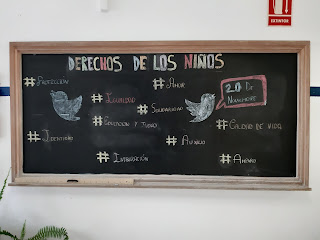 EXTINTOR
DERECHOS DE LOS NIÑOS
#PROTECCIÓN
#AMOR
#IGUALDAD
#SOLIDARIDAD
20 DE
NOVIEMBRE
#EDUCACIÓN Y JUEGO
#CALIDAD DE VIDA
#IDENTIDAD
#AUXILIO
#INTEGRACIÓN
#AMPARO